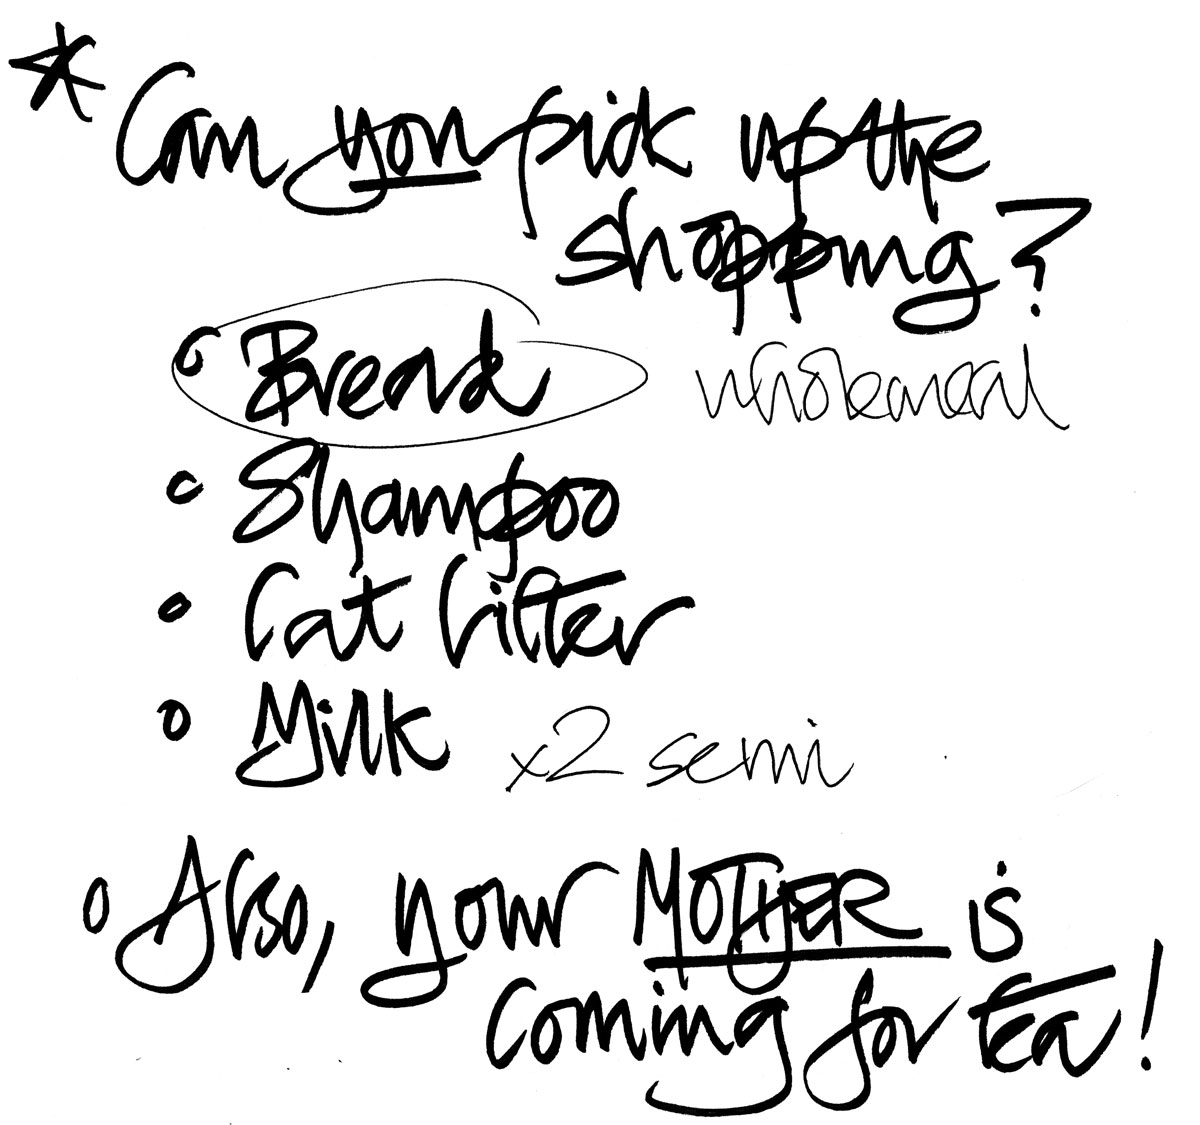 * Can you pick up the
shopping?
o Bread wholemeal
o Shampoo
o Cat litter
o Milk x2 semi
o Also, your MOTHER is
coming for tea!